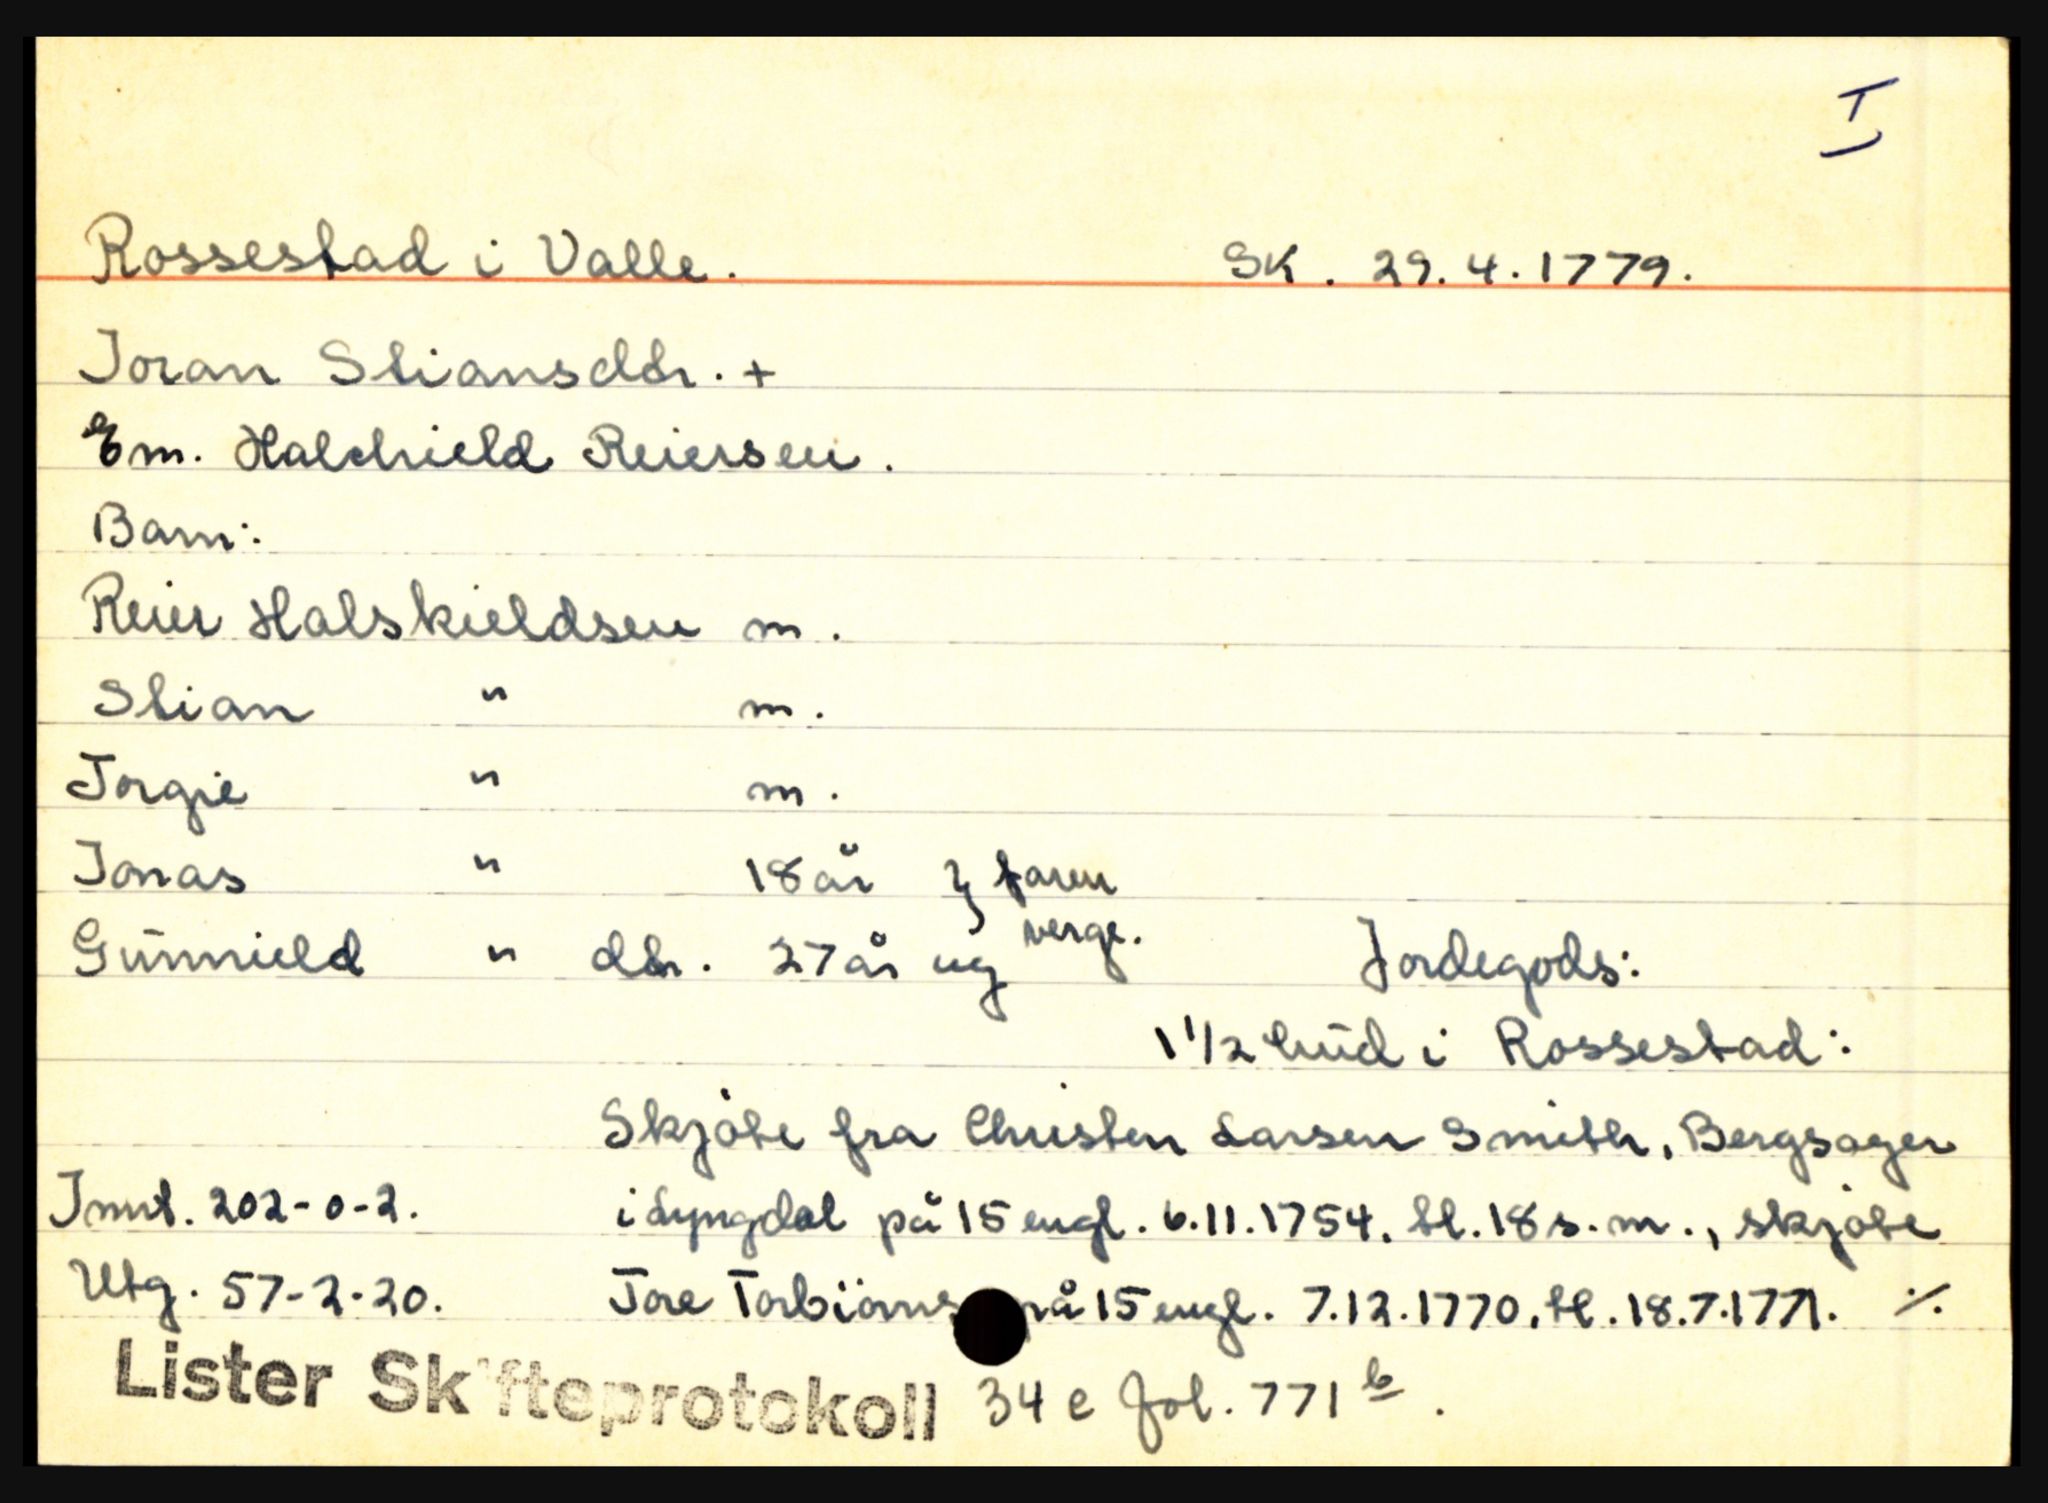 I
Rossestad i Valle. SK. 29.4.1779.
Joran Stiansdtr. +
Em. Halchield Reiersen.
Barn:
Reier Halskieldsen m.
Stian " m.
Torgie " m.
Jonas " 18 år } faren
verge.
Gunnield " dtr. 27 år ug Jordegods:
1 1/2 hud i Rossestad:
Skjöte fra Christen Larsen Smith, Bergsager
Innt. 202-0-2. i Lyngdal på 15 engl. 6.11.1754, tl. 18 s.m., skjöte
Utg. 57-2-20. Tore Torbiörns på 15 engl. 7.12.1770, tl. 18.7.1771. ./.
Lister Skifteprotokoll 34 e fol. 771 b.